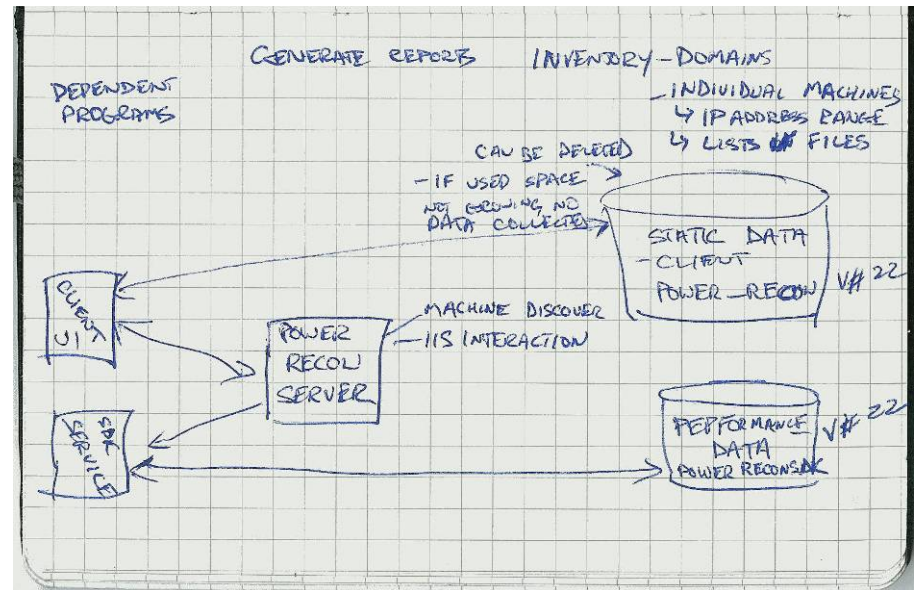 GENERATE REPORTS
INVENTORY - DOMAINS
- INDIVIDUAL MACHINES
↳ IP ADDRESS RANGE
↳ LISTS FILES
DEPENDENT
PROGRAMS
CAN BE DELETED
- IF USED SPACE
NOT GROWING, NO
DATA COLLECTED
STATIC DATA
- CLIENT
POWER_RECON
V# 22
CLIENT
UI
POWER
RECON
SERVER
- MACHINE DISCOVER
- IIS INTERACTION
SDK
SERVICE
PERFORMANCE
DATA
POWER RECONSDK
V# 22